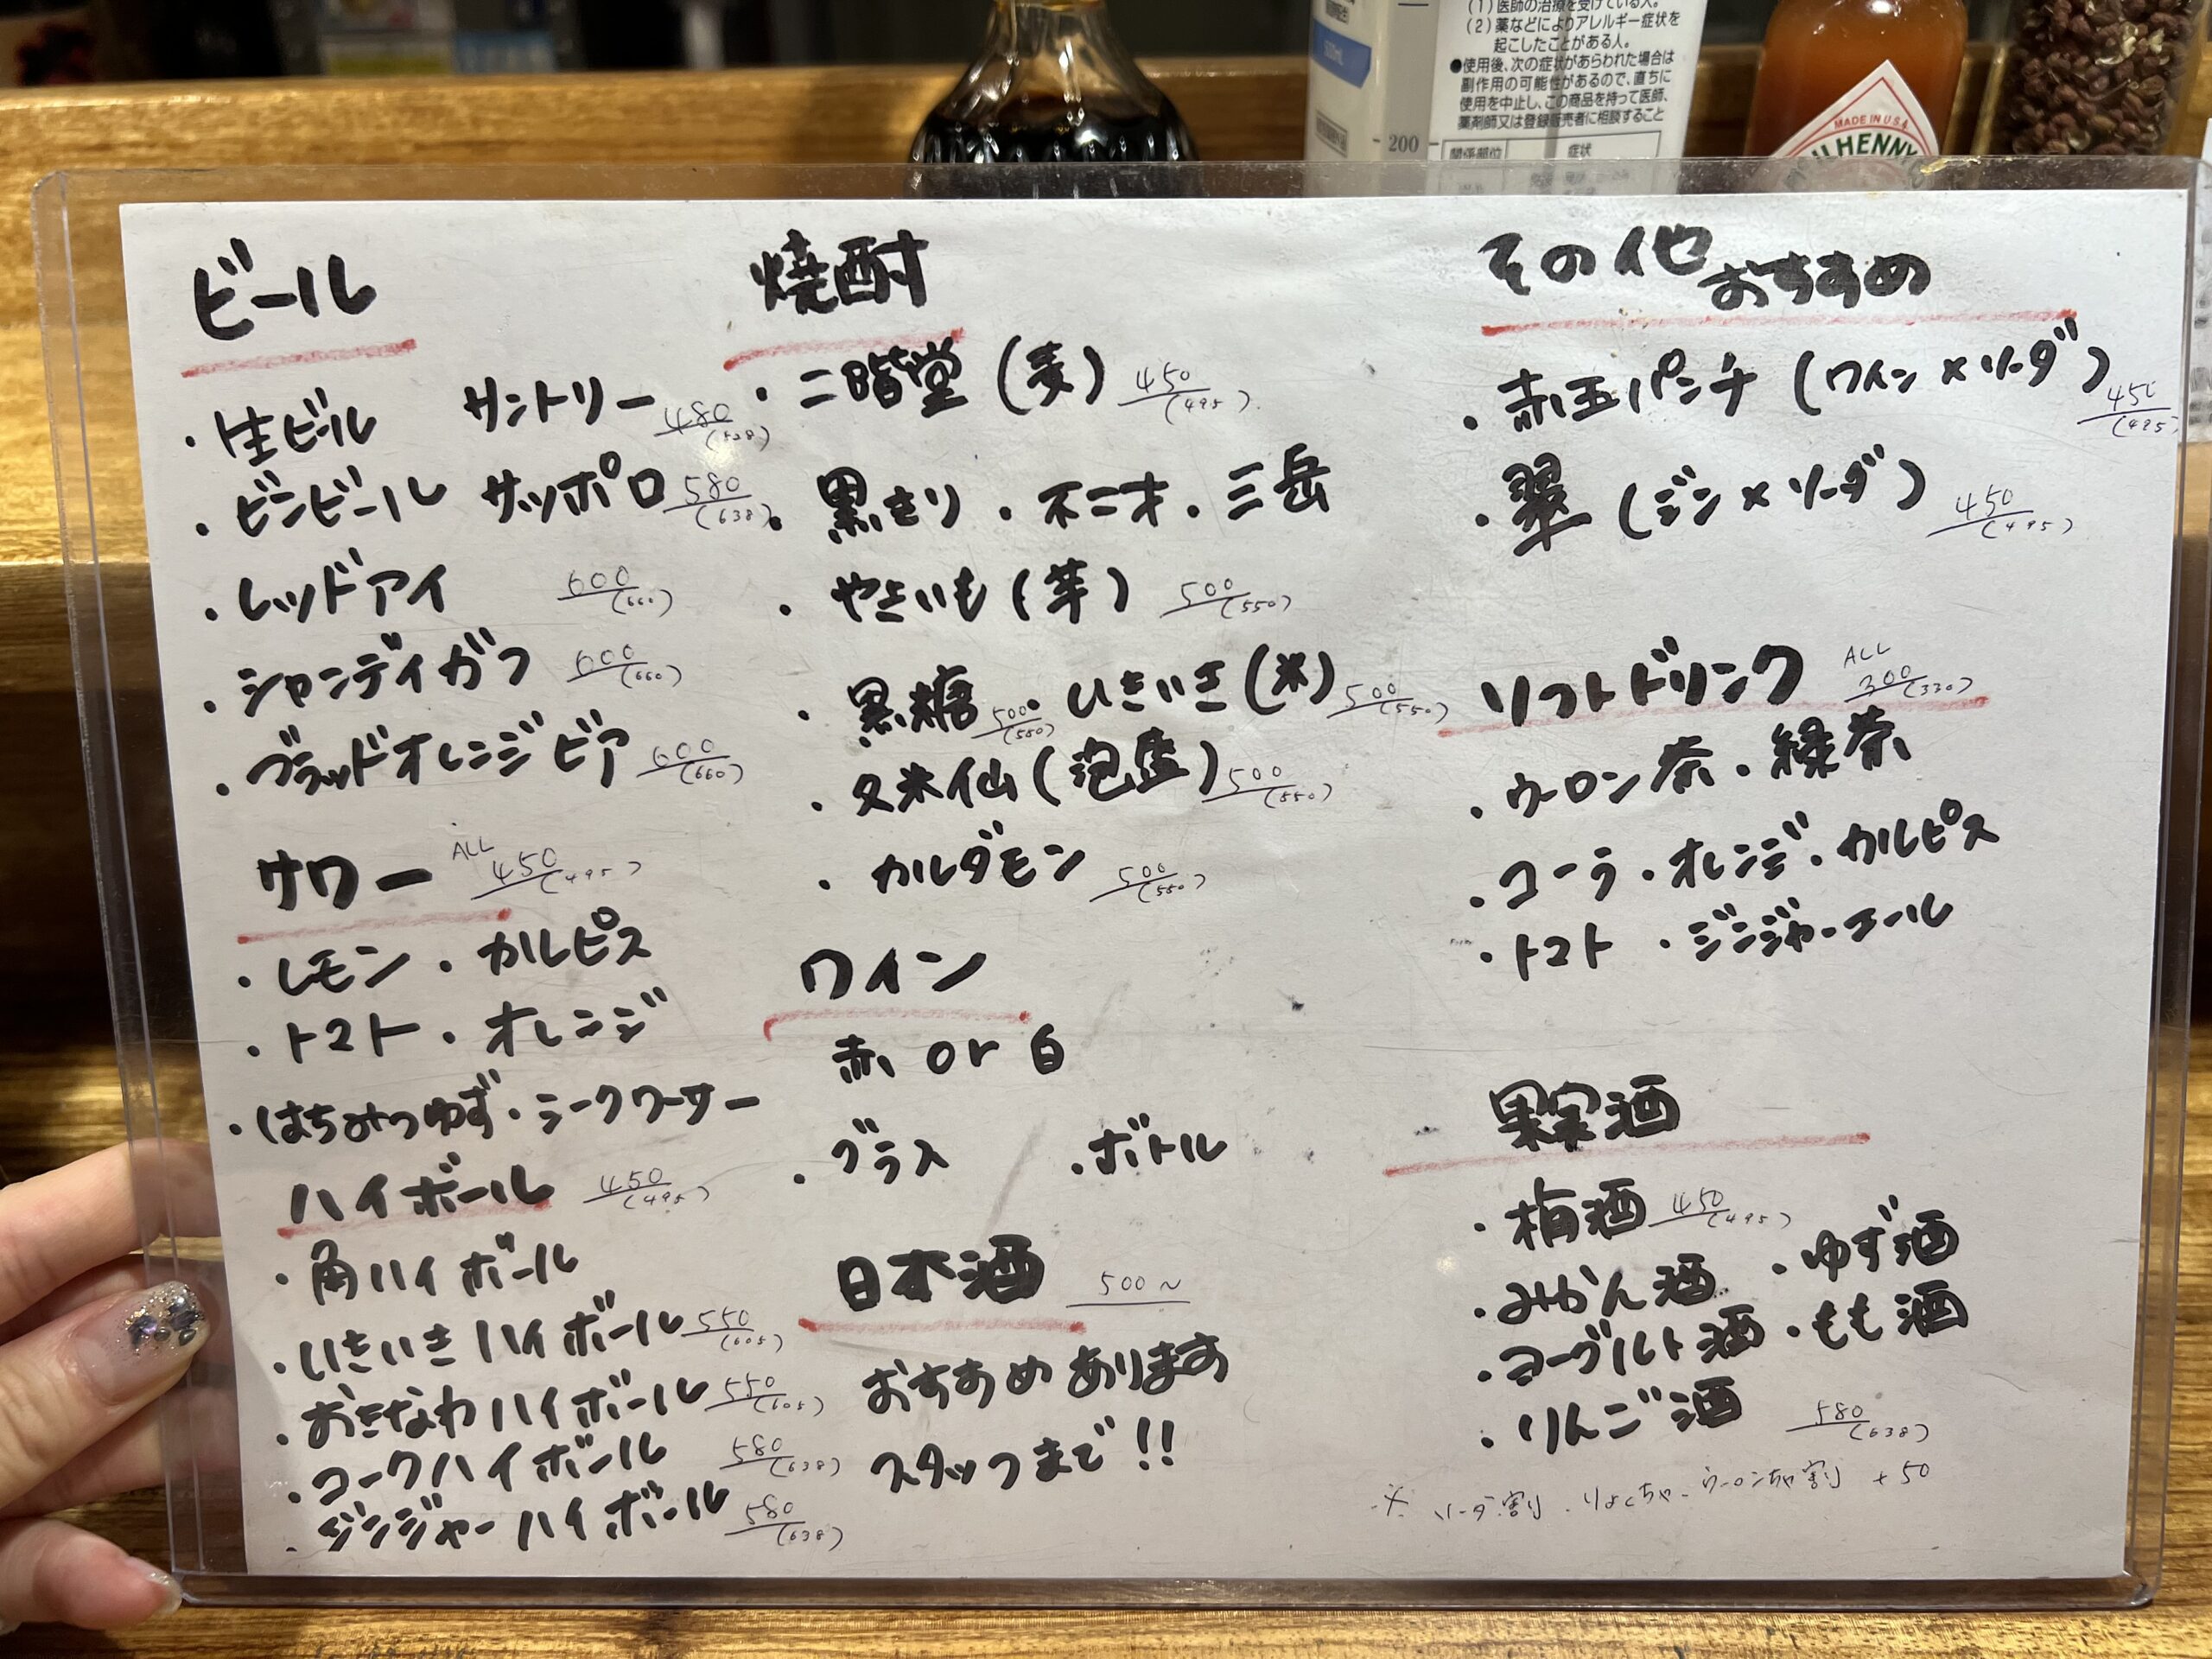 (1) 医師の治療を受けている人。
(2) 薬などによりアレルギー症状を
起こしたことがある人。
●使用後、次の症状があらわれた場合は
副作用の可能性があるので、直ちに
使用を中止し、この商品を持って医師、
薬剤師又は登録販売者に相談すること
関係部位 症状
200
MADE IN U.S.A.
ILHENNY
ビール
・生ビール サントリー 480 (528)
・ビンビール サッポロ 580 (638)
・レッドアイ 600 (660)
・シャンディガフ 600 (660)
・ブラッドオレンジビア 600 (660)
サワー ALL 450 (495)
・レモン ・カルピス
・トマト ・オレンジ
・はちみつゆず ・シークワーサー
ハイボール 450 (495)
・角ハイボール
・いきいきハイボール 550 (605)
・おきなわハイボール 550 (605)
・コークハイボール 580 (638)
・ジンジャーハイボール 580 (638)
焼酎
・二階堂 (麦) 450 (495)
・黒きり ・不二才 ・三岳
・やきいも (芋) 500 (550)
・黒糖 500 (550) ・いきいき (米) 500 (550)
・久米仙 (泡盛) 500 (550)
・カルダモン 500 (550)
ワイン
赤 or 白
・グラス ・ボトル
日本酒 500〜
おすすめあります
スタッフまで!!
その他おすすめ
・赤玉パンチ (ワイン×ソーダ) 450 (495)
・翠 (ジン×ソーダ) 450 (495)
ソフトドリンク ALL 300 (330)
・ウーロン茶 ・緑茶
・コーラ ・オレンジ ・カルピス
・トマト ・ジンジャーエール
果実酒
・梅酒 450 (495)
・みかん酒 ・ゆず酒
・ヨーグルト酒 ・もも酒
・りんご酒 580 (638)
※ ソーダ割・りょくちゃ・ウーロンちゃ割 +50